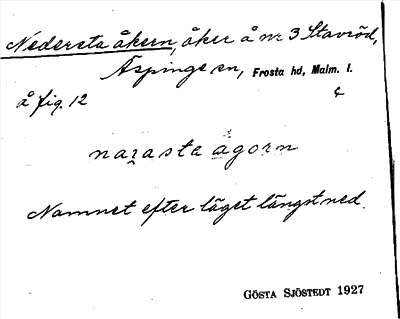 Nedersta åkern, åker å nr 3 Stavröd,
Äspinge sn, Frosta hd, Malm. l.
å fig. 12
naɀasta agorn
Namnet efter läget längst ned.
GÖSTA SJÖSTEDT 1927